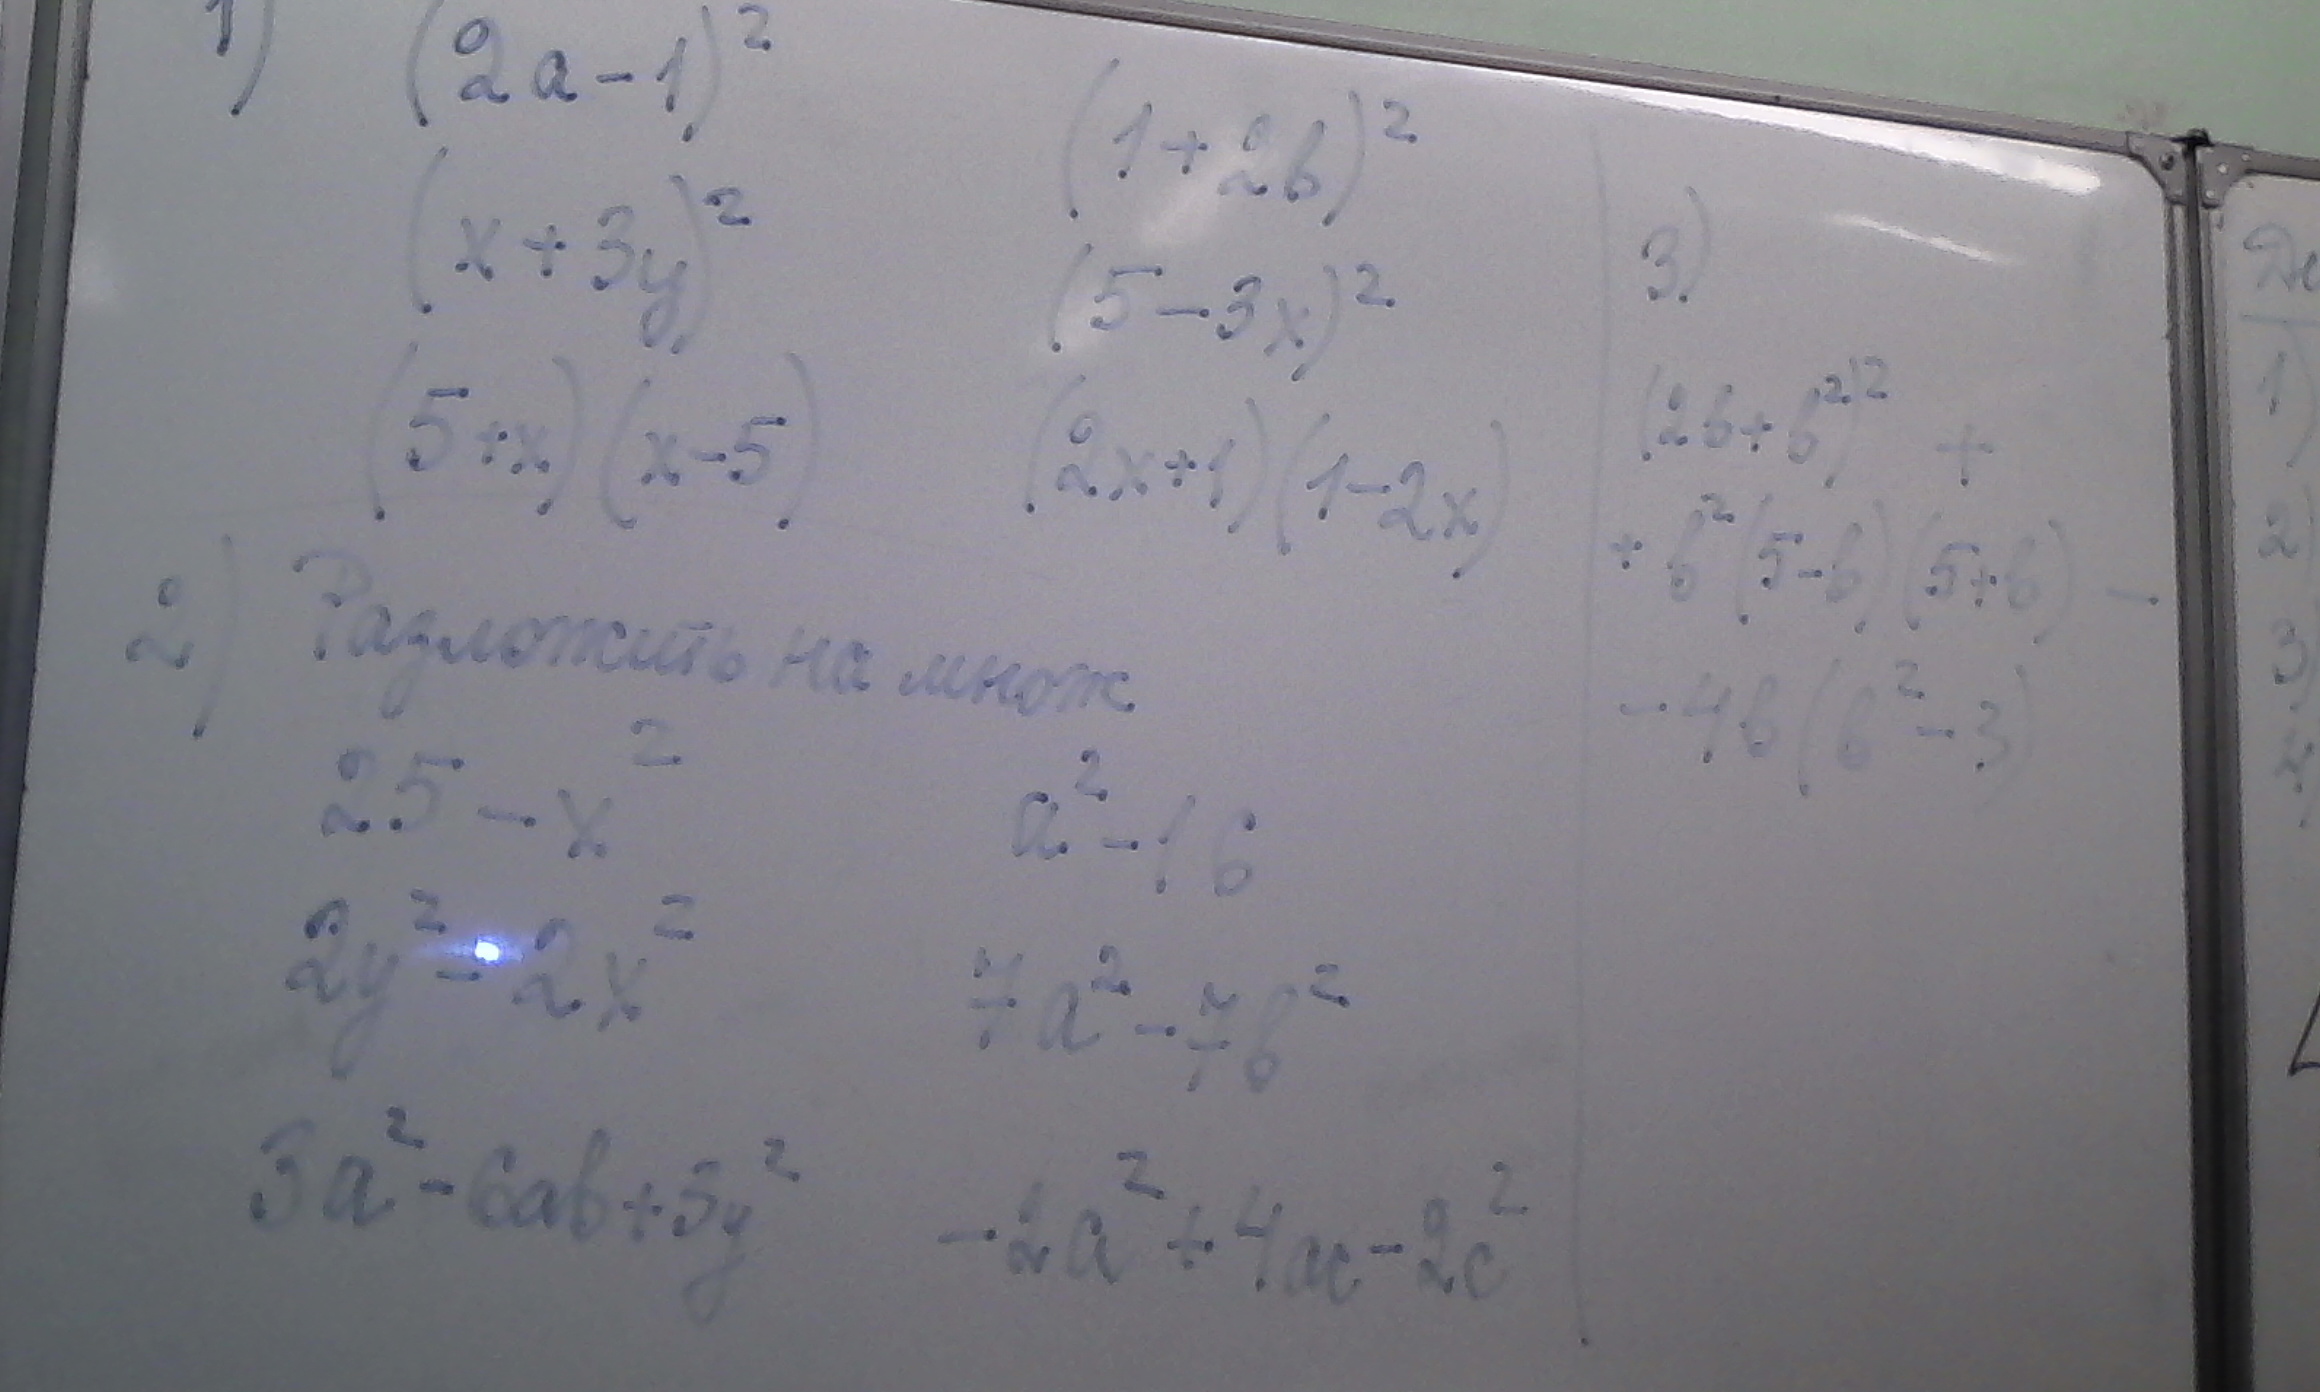 1) (2a-1)² (1+2b)²
(x+3y)² (5-3x)²
(5+x)(x-5) (2x+1)(1-2x)
2) Разложить на множ
25-x² a²-16
2y²-2x² 7a²-7b²
3a²-6ab+3y² -2a²+4ac-2c²
3)
(2b+b²)² +
+b²(5-b)(5+b) -
-4b(b²-3)
1)
2)
3)
4)